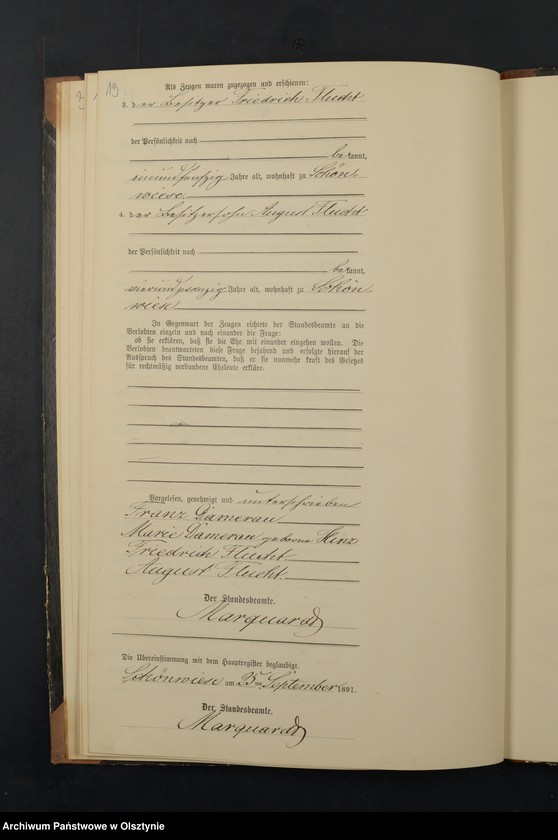 19
Als Zeugen waren zugezogen und erschienen:
3. der Besitzer Friedrich Flucht
der Persönlichkeit nach
be kannt,
einundfünfzig Jahre alt, wohnhaft zu Schön-
wiese
4. der Besitzersohn August Flucht
der Persönlichkeit nach
be kannt,
vierundzwanzig Jahre alt, wohnhaft zu Schön
wiese
In Gegenwart der Zeugen richtete der Standesbeamte an die
Verlobten einzeln und nach einander die Frage:
ob sie erklären, daß sie die Ehe mit einander eingehen wollen. Die
Verlobten beantworteten diese Frage bejahend und erfolgte hierauf der
Ausspruch des Standesbeamten, daß er sie nunmehr kraft des Gesetzes
für rechtmäßig verbundene Eheleute erkläre.
Vorgelesen, genehmigt und unterschrieben
Franz Damerau
Marie Damerau geborne Hinz
Friedrich Flucht
August Flucht
Der Standesbeamte.
Marquardt
Die Übereinstimmung mit dem Hauptregister beglaubigt.
Schönwiese am 25 ten September 1891.
Der Standesbeamte.
Marquardt
Archiwum Państwowe w Olsztynie